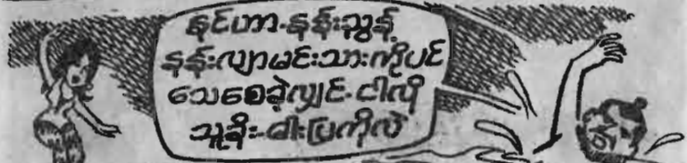 နင်ဟာ နန်းညွန့်
နန်းလျာမင်းသားကိုပင်
သေစေခဲ့လျှင် ငါလို
သူခိုး ဓါးပြကိုလဲ